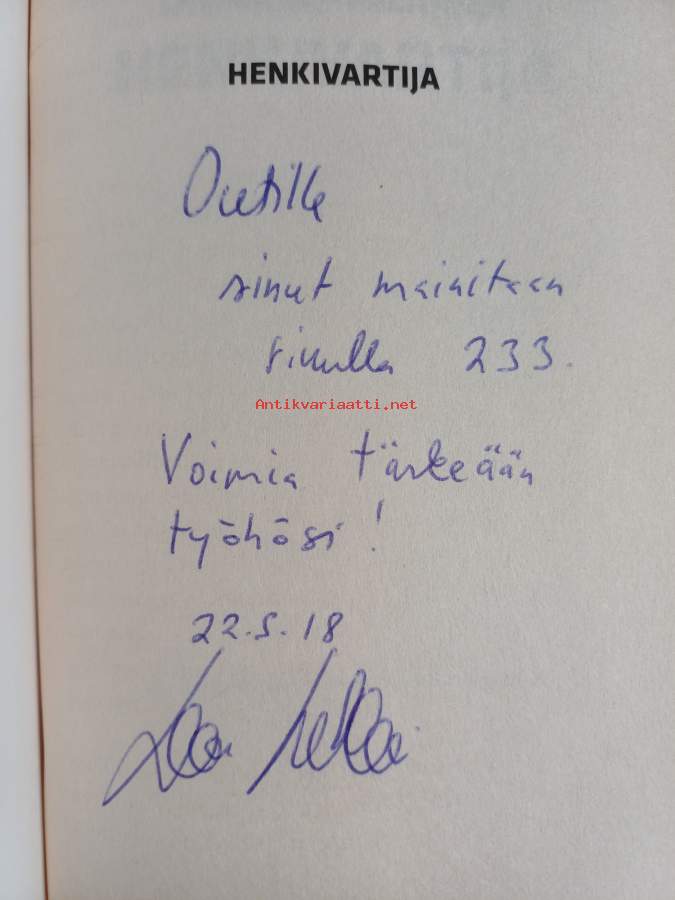 HENKIVARTIJA
Outille
sinut mainitaan
sivulla 233.
Antikvariaatti.net
Voimia tärkeään
työhösi!
22.5.18